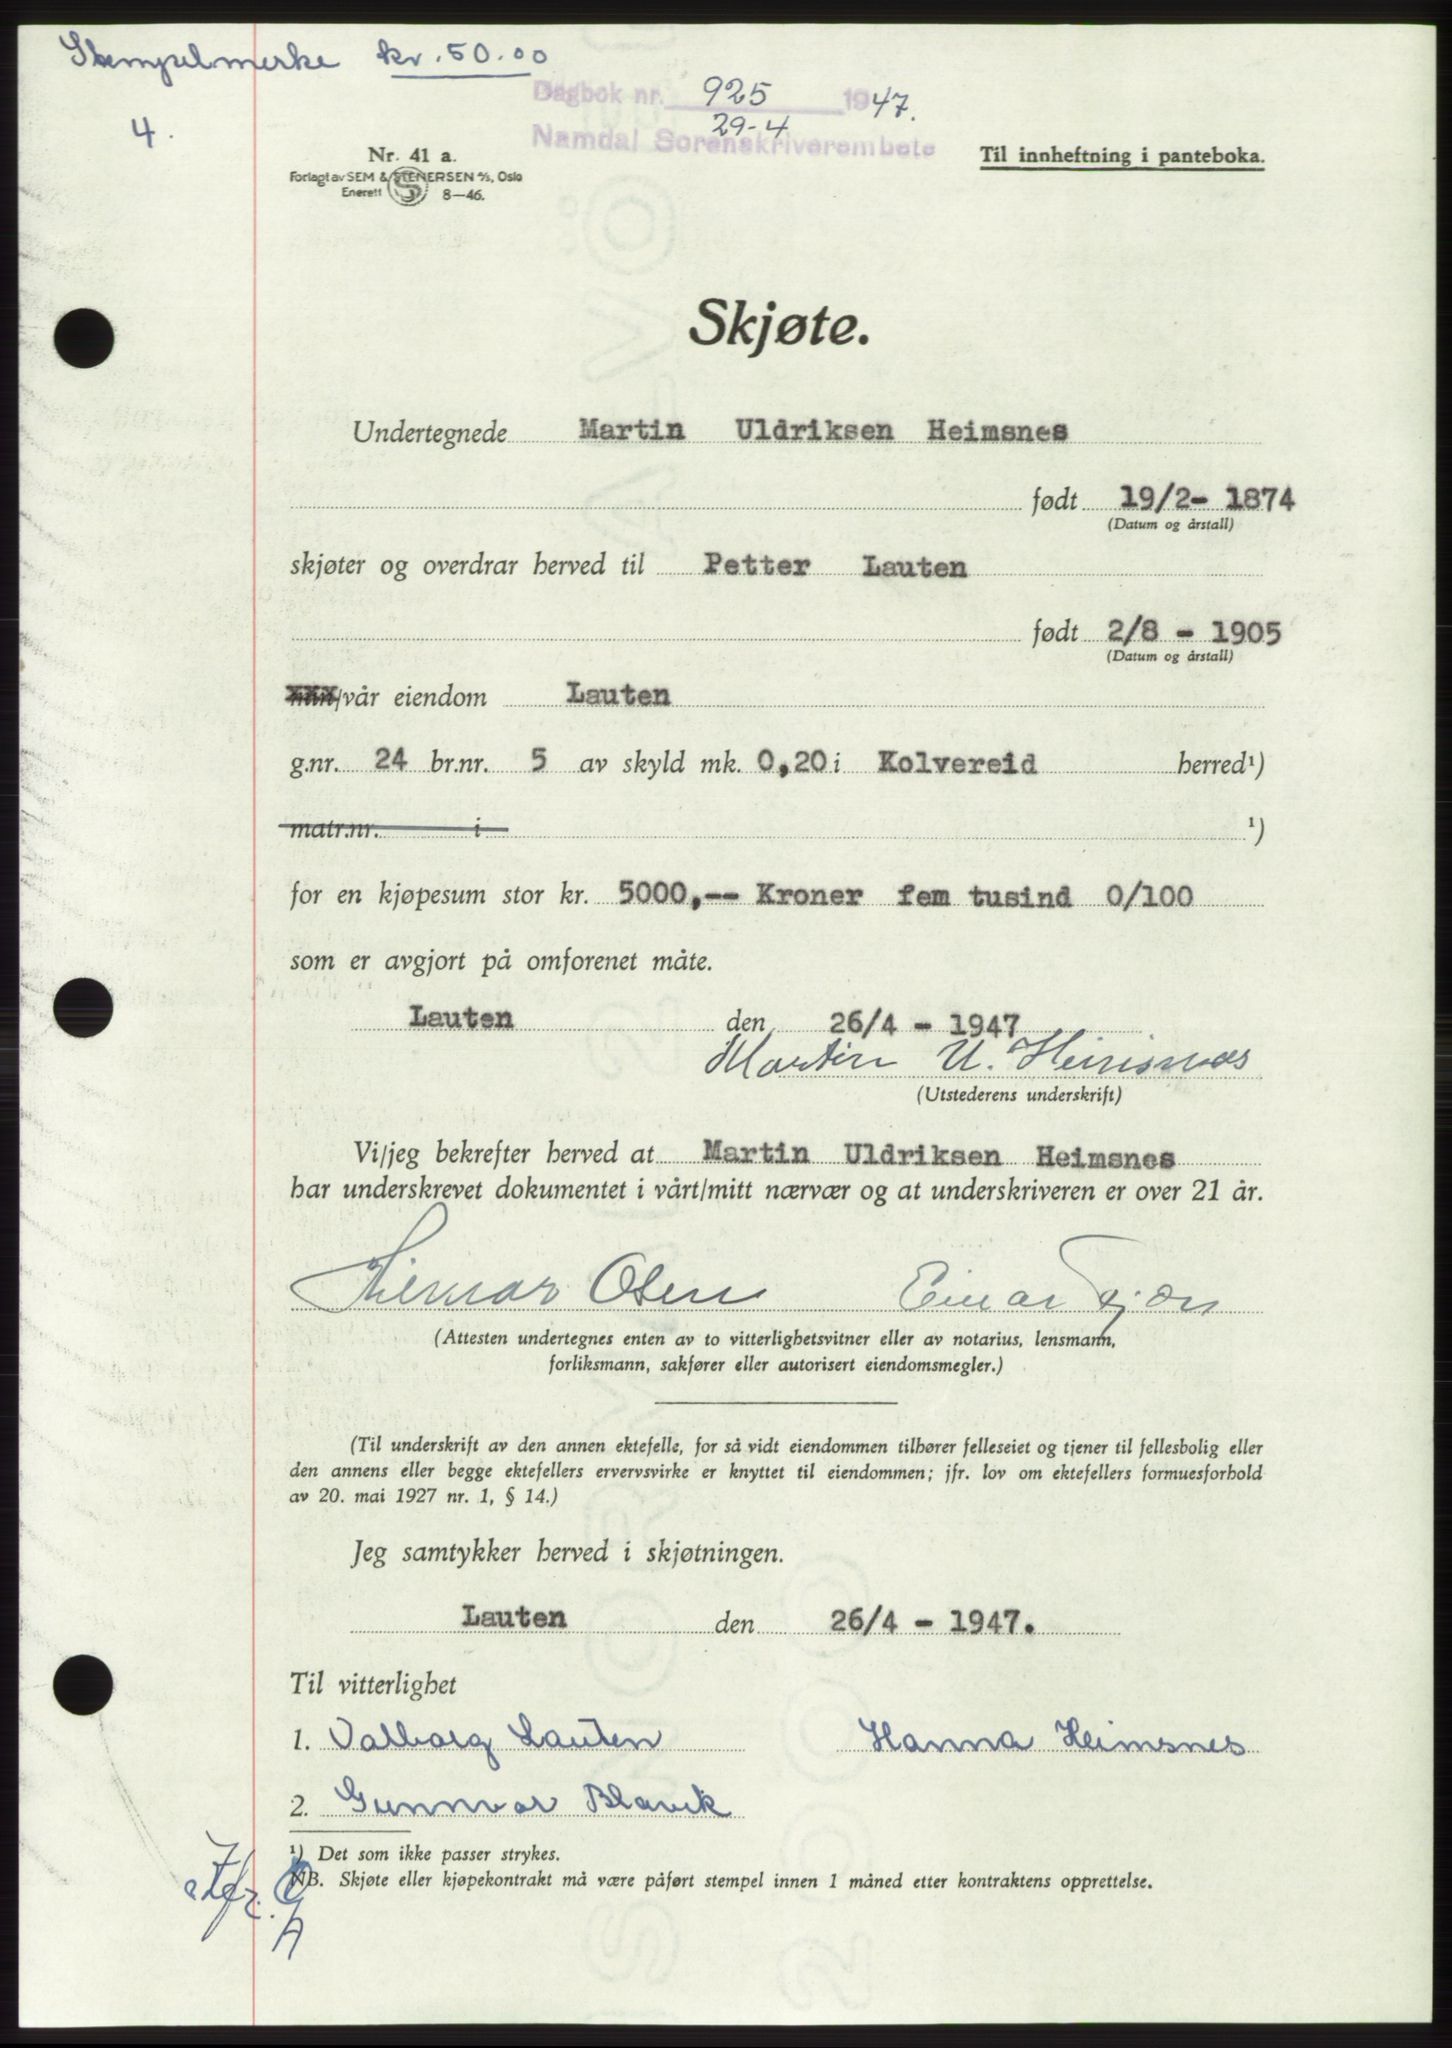 Stempelmerke kr. 50.00
4.
Dagbok nr. 925 1947.
29-4
Namdal Sorenskriverembete
Nr. 41 a.
Forlagt av SEM & STENERSEN A/S, Oslo
Enerett 8—46.
Til innheftning i panteboka.
Skjøte.
Undertegnede Martin Uldriksen Heimsnes
født 19/2- 1874
(Datum og årstall)
skjøter og overdrar herved til Petter Lauten
født 2/8 - 1905
(Datum og årstall)
min/vår eiendom Lauten
g.nr. 24 br.nr. 5 av skyld mk. 0,20 i Kolvereid herred¹)
matr.nr. i ¹)
for en kjøpesum stor kr. 5000,-- Kroner fem tusind 0/100
som er avgjort på omforenet måte.
Lauten den 26/4 - 1947
Martin U. Heimsnes
(Utstederens underskrift)
Vi/jeg bekrefter herved at Martin Uldriksen Heimsnes
har underskrevet dokumentet i vårt/mitt nærvær og at underskriveren er over 21 år.
Osen Einar
(Attesten undertegnes enten av to vitterlighetsvitner eller av notarius, lensmann,
forliksmann, sakfører eller autorisert eiendomsmegler.)
(Til underskrift av den annen ektefelle, for så vidt eiendommen tilhører felleseiet og tjener til fellesbolig eller
den annens eller begge ektefellers ervervsvirke er knyttet til eiendommen; jfr. lov om ektefellers formuesforhold
av 20. mai 1927 nr. 1, § 14.)
Jeg samtykker herved i skjøtningen.
Lauten den 26/4 - 1947.
Til vitterlighet
1. Valborg Lauten Hanna Heimsnes
2. Gunnvor Blavik
¹) Det som ikke passer strykes.
NB. Skjøte eller kjøpekontrakt må være påført stempel innen 1 måned etter kontraktens opprettelse.